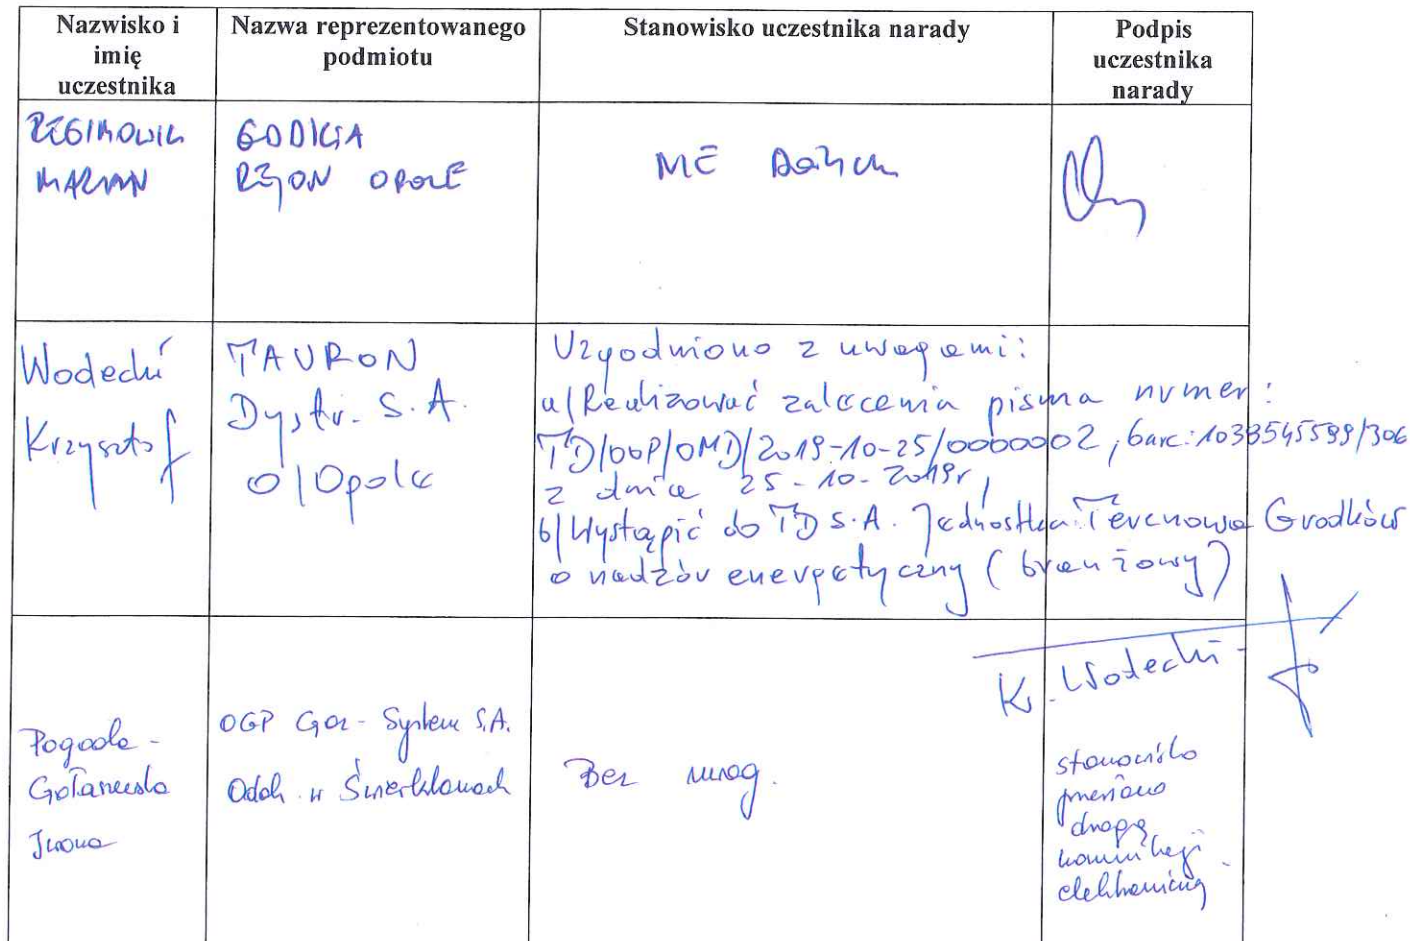 Nazwisko i
imię
uczestnika
Nazwa reprezentowanego
podmiotu
Stanowisko uczestnika narady
Podpis
uczestnika
narady
MARIAN
REJON OPOLE
Wodecki
Krzysztof
TAURON
Dystr. S.A.
O/Opole
Uzgodniono z uwagami:
a/ Realizować zalecenia pisma numer:
TD/OOP/OMD/2019-10-25/0000002, barc: 1038545599/306
z dnia 25-10-2019r,
b/ Wystąpić do TD S.A. Jednostka Terenowa Grodków
o nadzór energetyczny (branżowy)
K. Wodecki
Iwona
OGP Gaz-System S.A.
Oddz. w Świerklanach
Bez uwag.
stanowisko
drogą
elektroniczną